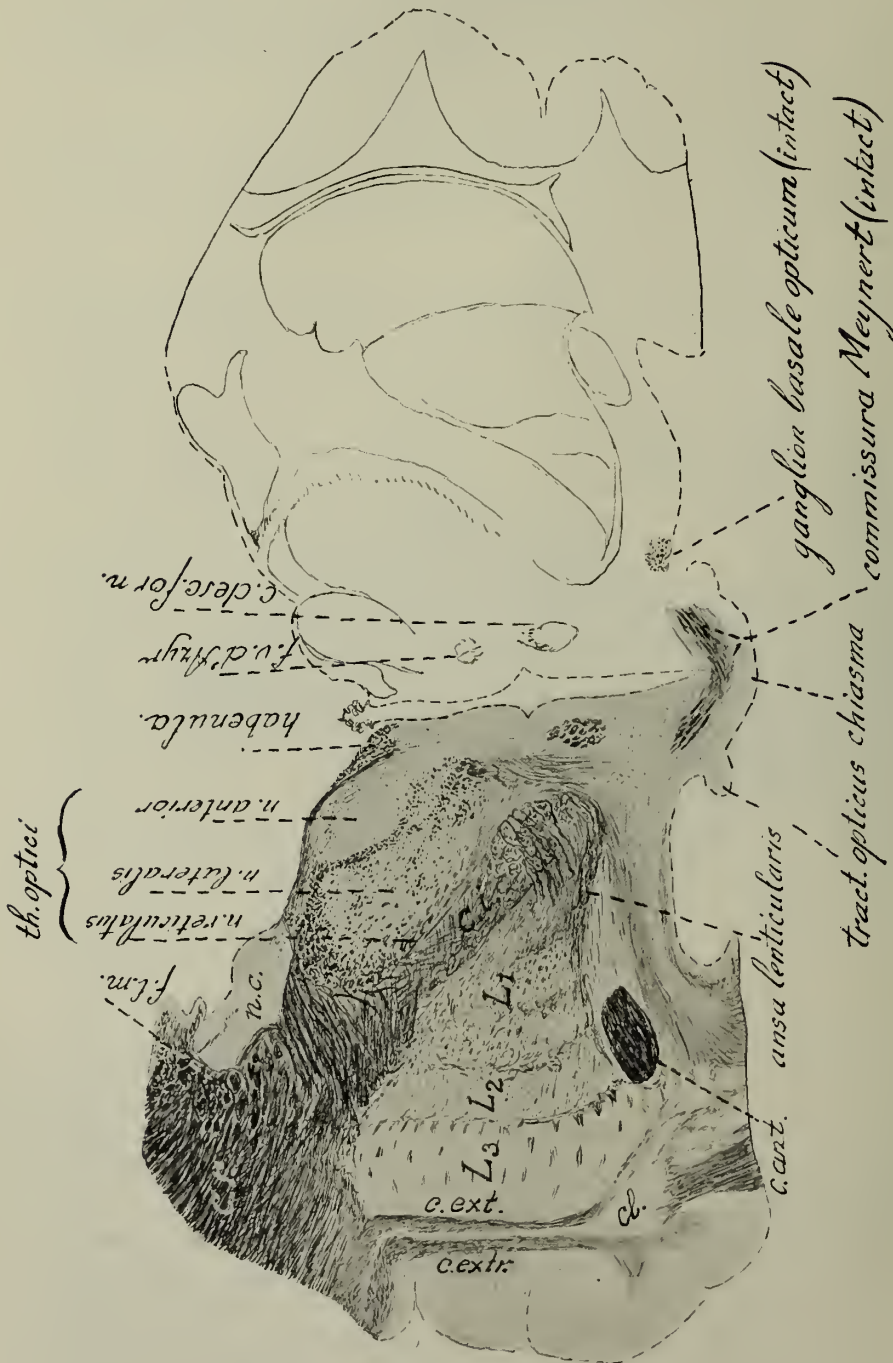 th. optici
f.l.m.
n. reticulatus
n. lateralis
n. anterior
habenula.
f.v.d'Azyr
C. desc. forn.
n.c.
c.i.
L1
L2
L3
c.ext.
c.extr.
cl.
c.ant.
ansa lenticularis
tract. opticus chiasma
commissura Meynert (intact)
ganglion basale opticum (intact)